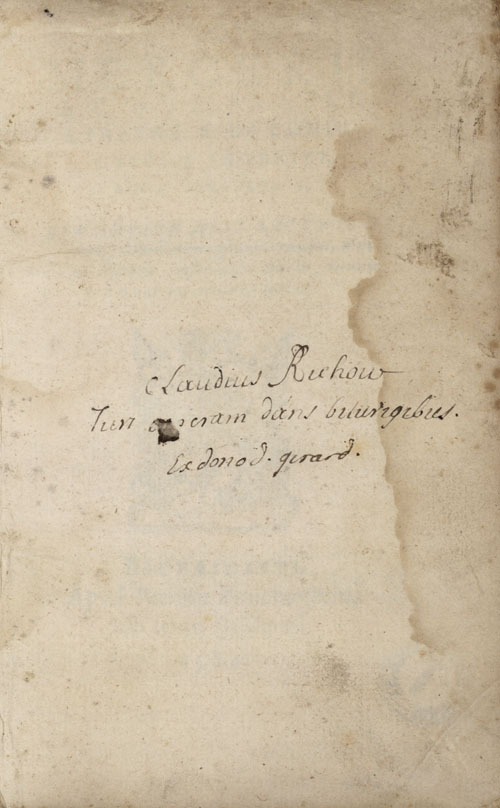 Claudius Richour
Juri operam dans biturigibus.
Ex dono d. girard.